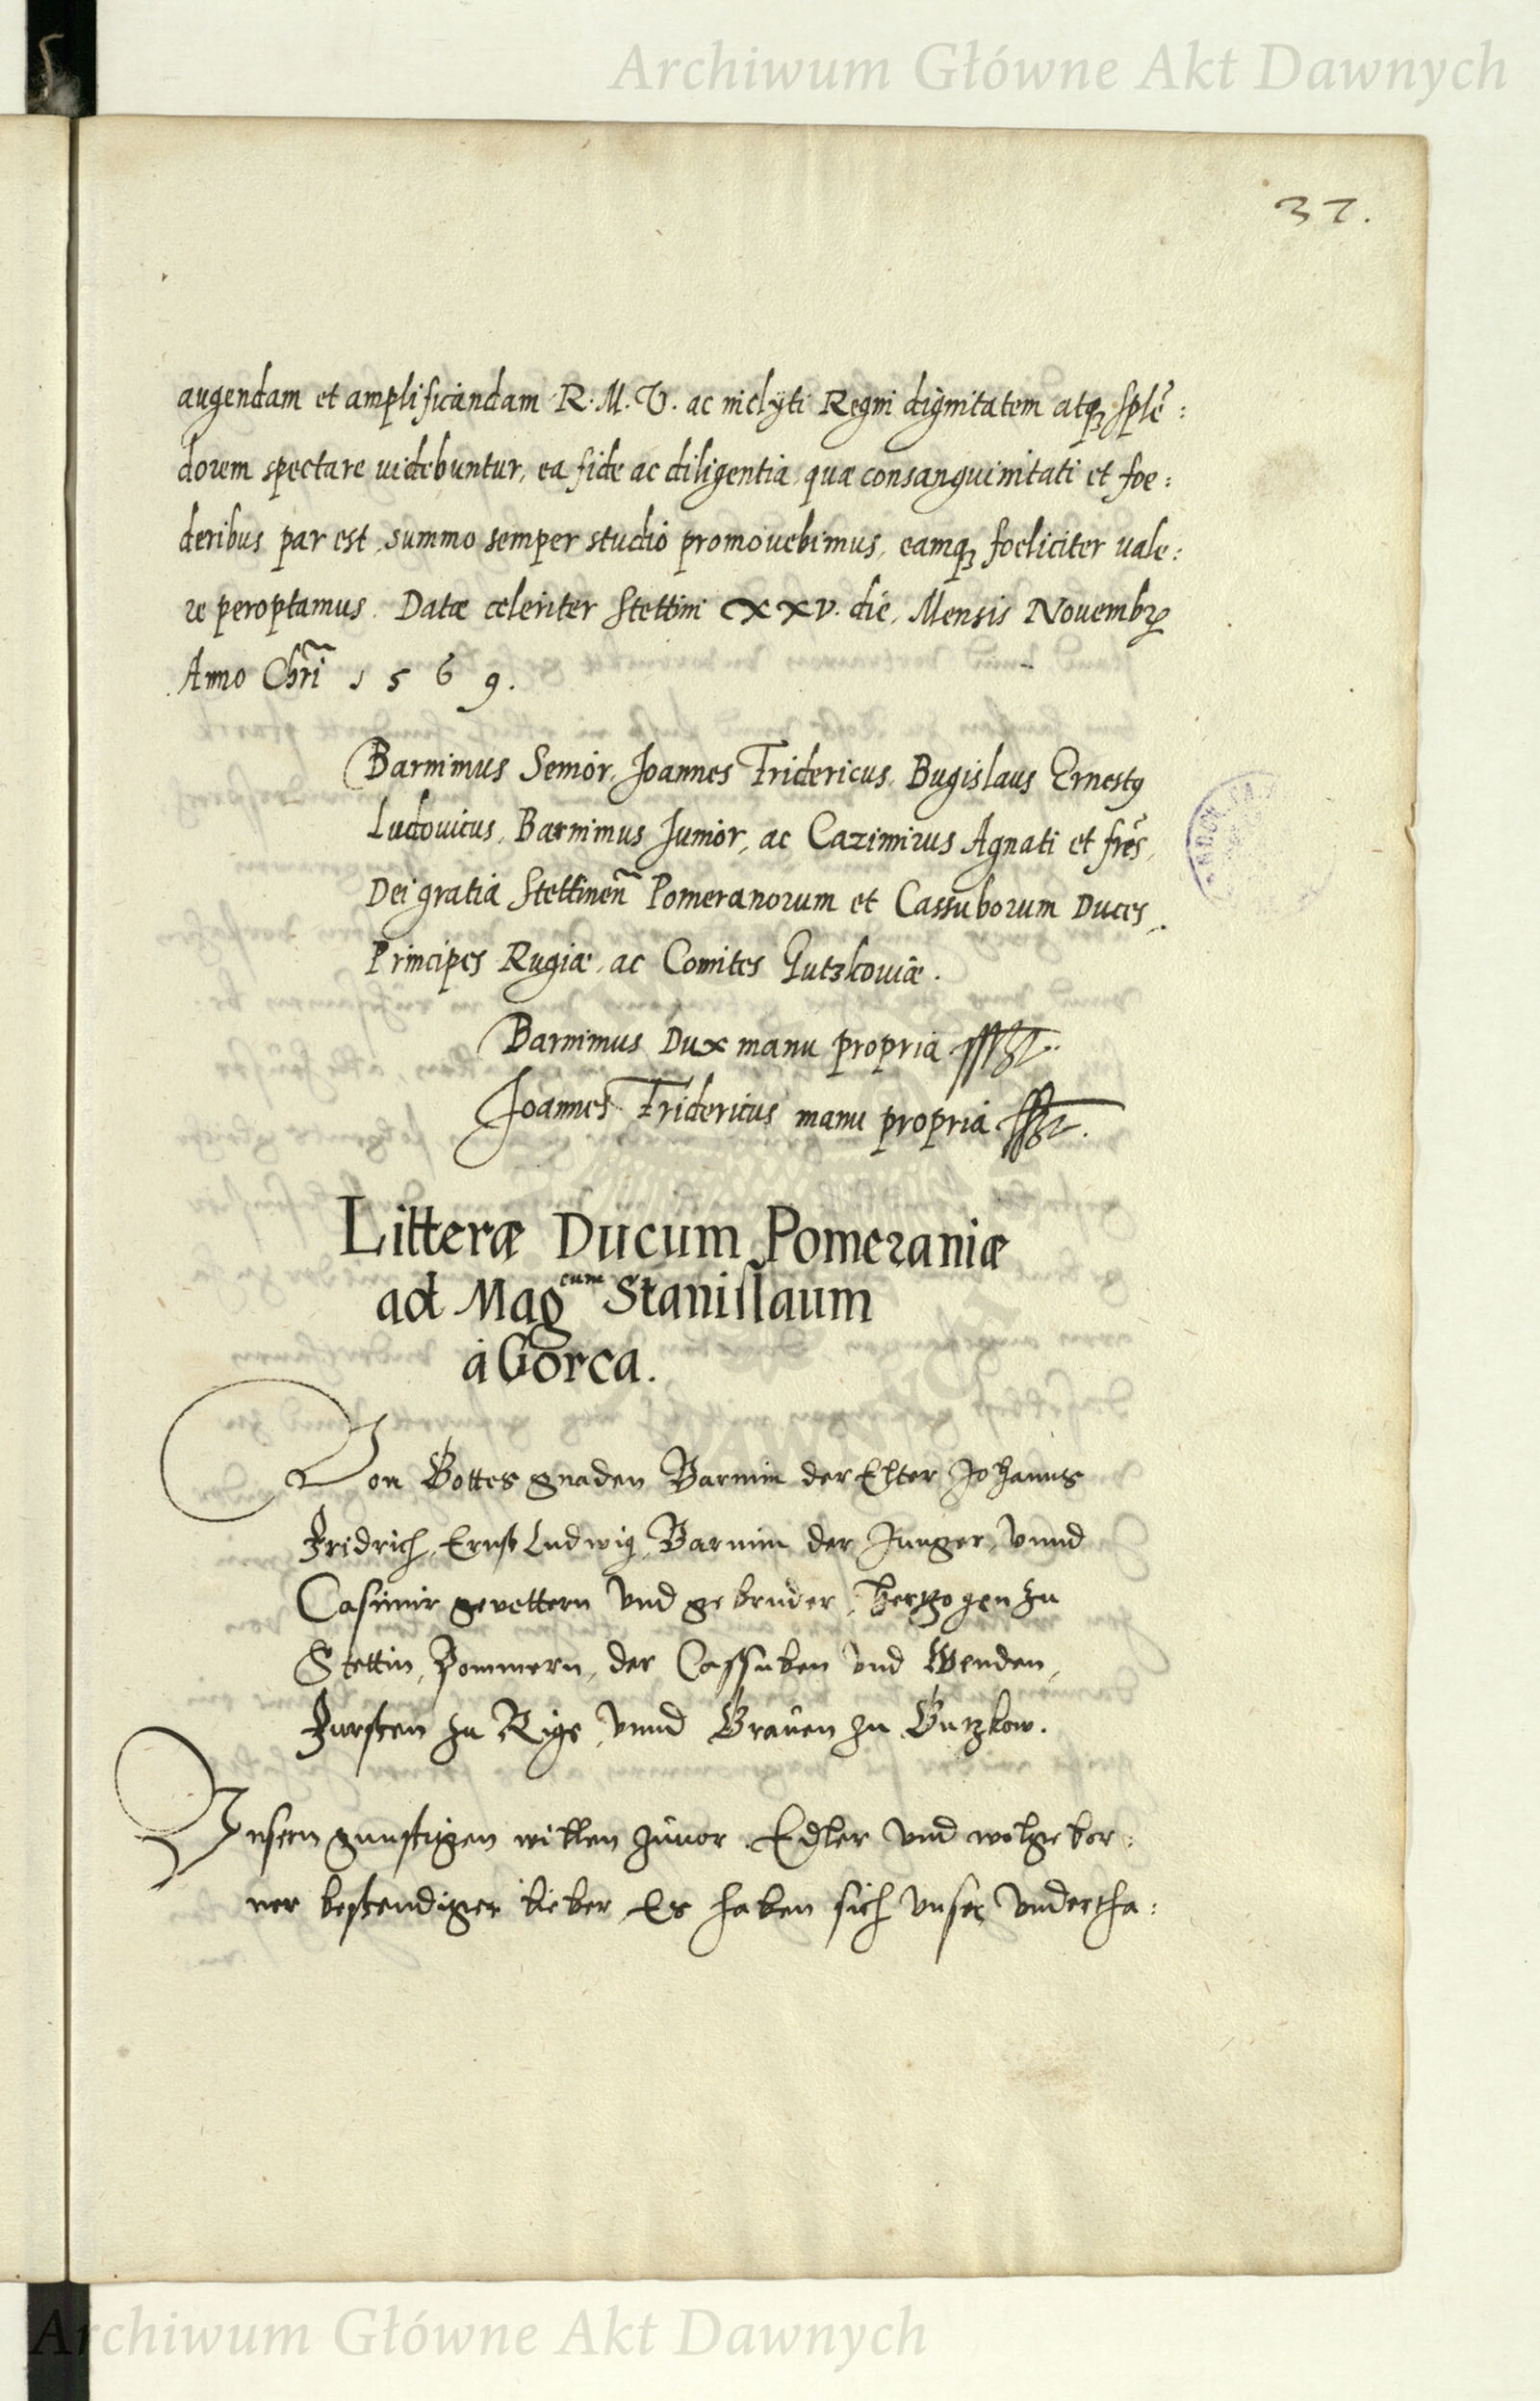 Archiwum Główne Akt Dawnych
37.
augendam et amplificandam R. M. V. ac inclyti Regni dignitatem atq₃ splē:
dorem spectare uidebuntur, ea fide ac diligentia quæ consanguinitati et foe:
deribus par est, summo semper studio promouebimus, eamq₃ foeliciter uale:
re peroptamus. Datæ celeriter Stettini XXV. die, Mensis Nouembꝝ
Anno Chr̃i 1569.
Barnimus Senior, Joannes Fridericus, Bugislaus Ernestꝯ
Ludouicus, Barnimus Junior, ac Cazimirus Agnati et fr̃es,
Dei gratia Stettineñ Pomeranorum et Cassuborum Duces,
Principes Rugiæ, ac Comites Gutzkouiæ.
Barnimus Dux manu propria
Joannes Fridericus manu propria
Litteræ Ducum Pomeraniæ
ad Mag^cum Stanislaum
à Gorca.
Von Gottes gnaden Barnim der Elter Johanns
Fridrich, Ernst Ludwig, Barnim der Junger, vnnd
Casimir geuettern vnd gebruder, Hertzogen zu
Stettin, Pommern, der Cassuben vnd Wenden,
Fursten zu Rige, vnnd Grauen zu Gutzkow.
Vnsern gunstigen willen zuuor. Edler vnd wolgebor:
ner bestendiger lieber, Es haben sich vnser vndertha:
Archiwum Główne Akt Dawnych